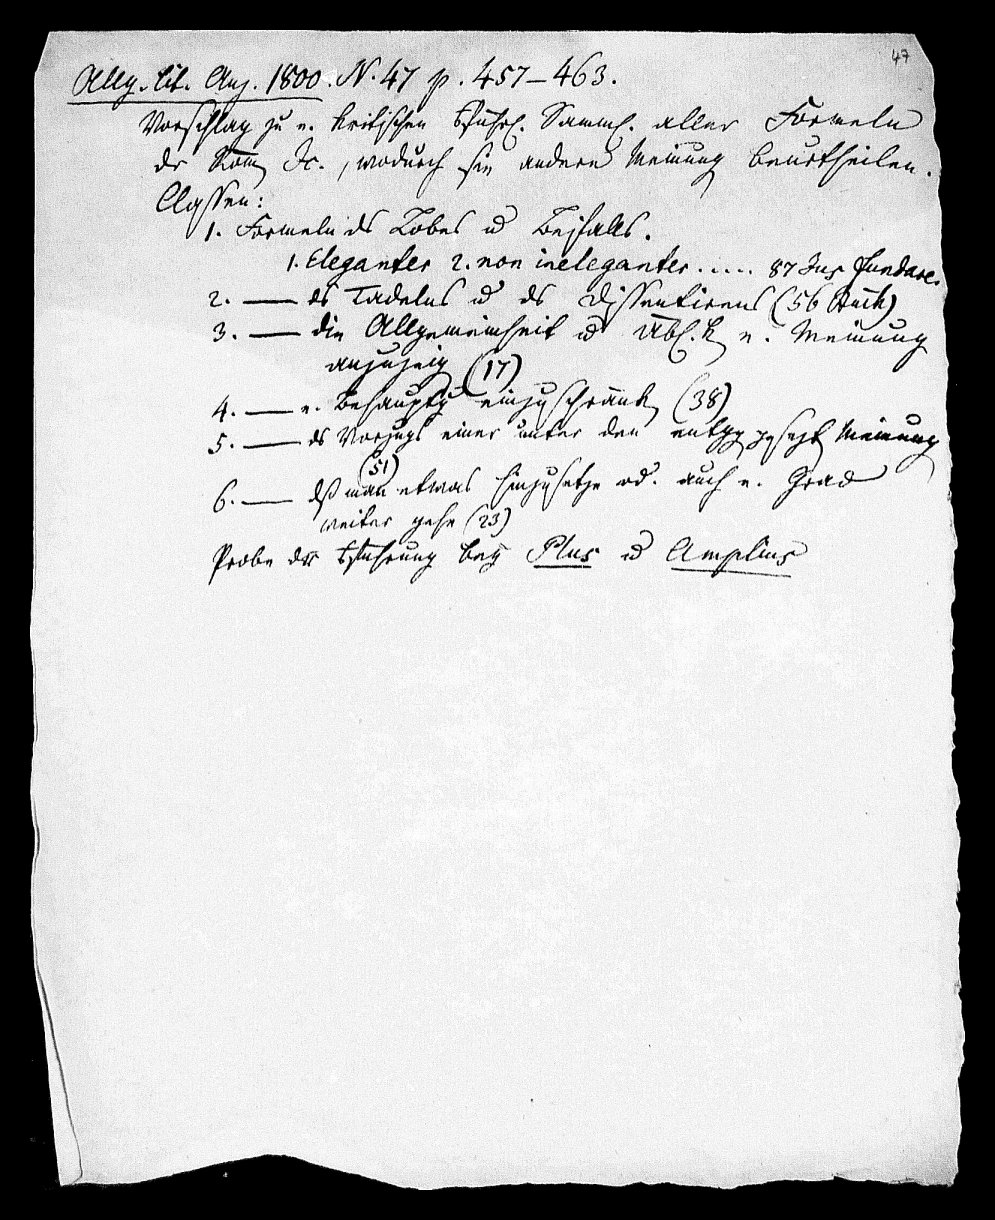 47
Allg. lit. Anz. 1800. N. 47 p. 457–463.
Vorschlag zu e. kritischen Samml. aller Formeln
der Röm. Jc., wodurch sie anderer Meinung beurtheilen.
Classen:
1. Formeln ds Lobes u Beifalls.
1. Eleganter 2. non ineleganter ..... 87 Jus fundare.
2. — ds Tadelns u ds Dissentirens (56 Stück)
3. — die Allgemeinheit u e. Meinung
anzuzeig (17)
4. — e. Behauptg einzuschränk (38)
5. — ds Vorzugs einer unter den entgggesezt Meinung
(51)
6. — dß man etwas hinzusetze od. auch e. Grad
weiter gehe (23)
Probe der bey Plus u Amplius